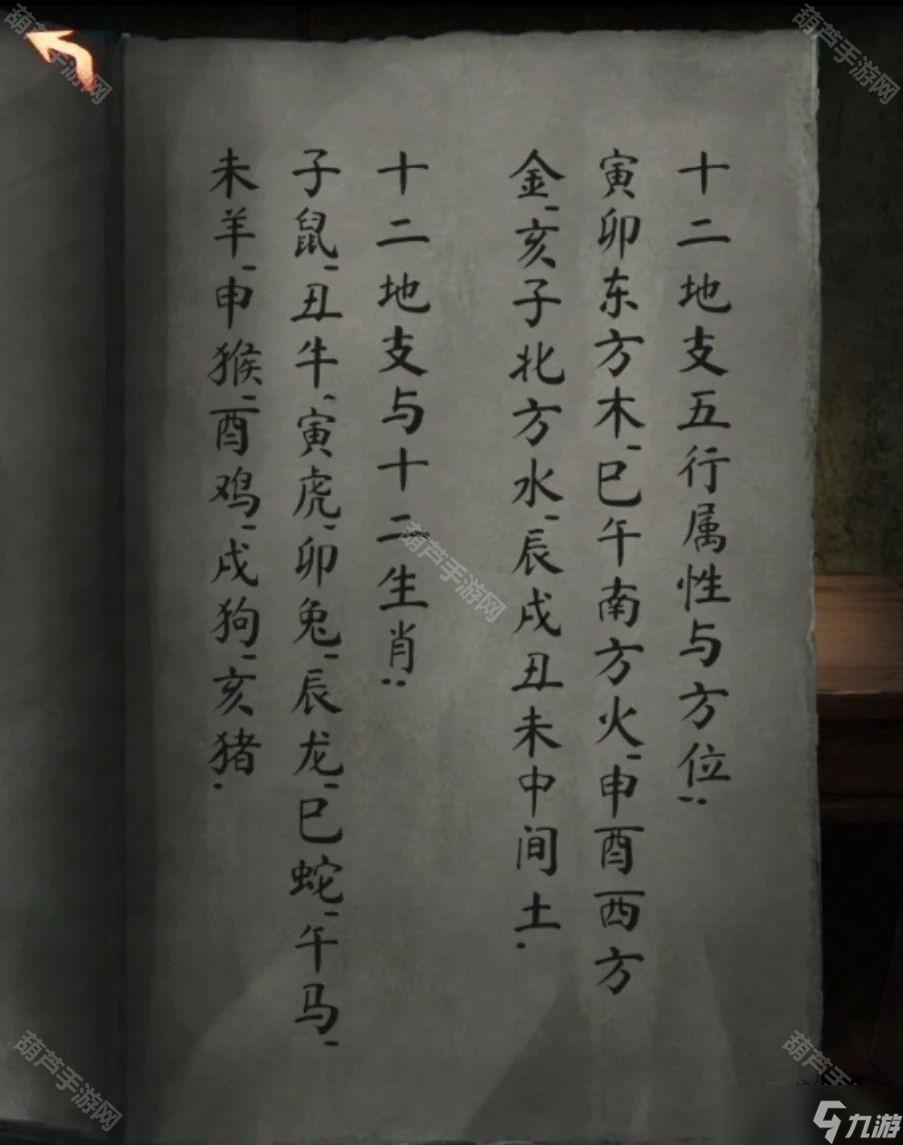 十二地支五行属性与方位：
寅卯东方木、巳午南方火、申酉西方
金、亥子北方水、辰戌丑未中间土。
十二地支与十二生肖：
子鼠、丑牛、寅虎、卯兔、辰龙、巳蛇、午马、
未羊、申猴、酉鸡、戌狗、亥猪。
葫芦手游网
葫芦手游网
葫芦手游网
葫芦手游网
葫芦手游
九游